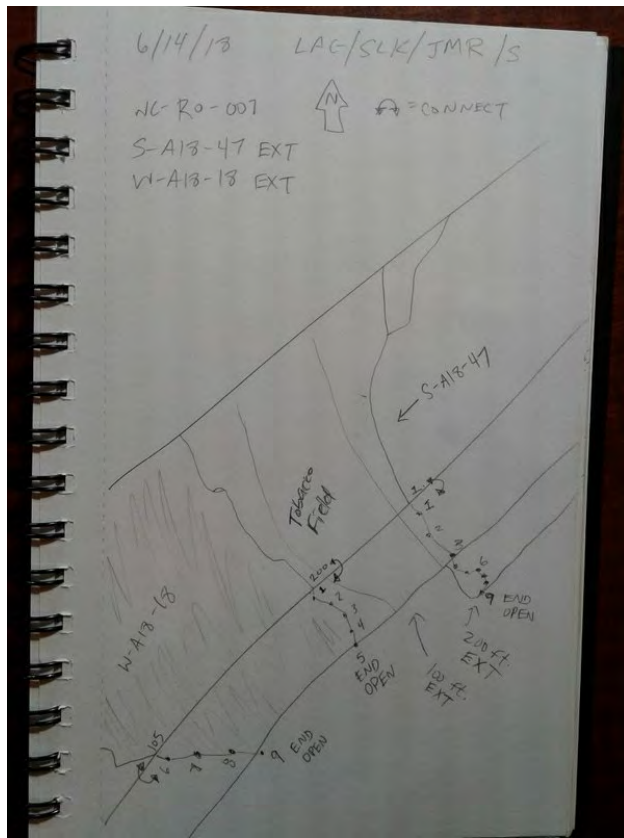 6/14/18 LAG/SLK/JMR/S
NC-RO-007
N
= CONNECT
S-A18-47 EXT
W-A18-18 EXT
S-A18-47
Tobacco
Field
200
1
2
3
4
5
END
OPEN
4
6
9 END
OPEN
200 ft.
EXT
100 ft.
EXT
W-A18-18
105
6
7
8
9
END
OPEN